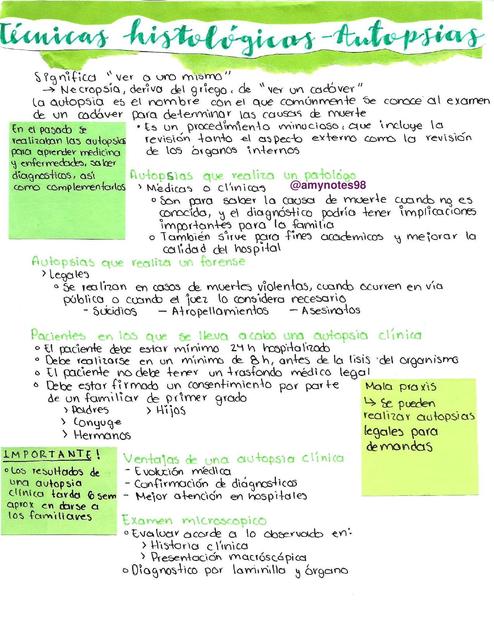 Técnicas histológicas - Autopsias
Significa "ver a uno mismo"
→ Necropsia, deriva del griego, de "ver un cadáver"
La autopsia es el nombre con el que comúnmente se conoce al examen
de un cadáver para determinar las causas de muerte
En el pasado se
realizaban las autopsias
para aprender medicina
y enfermedades, saber
diagnosticos, así
como complementarlos
• Es un procedimiento minucioso, que incluye la
revisión tanto el aspecto externo como la revisión
de los órganos internos
Autopsias que realiza un patólogo
> Médicas o clínicas
@amynotes98
° Son para saber la causa de muerte cuando no es
conocida, y el diagnóstico podría tener implicaciones
importantes para la familia
° También sirve para fines academicos y mejorar la
calidad del hospital
Autopsias que realiza un forense
> Legales
° Se realizan en casos de muertes violentas, cuando ocurren en vía
pública o cuando el juez lo considera necesario
- Suicidios - Atropellamientos - Asesinatos
Pacientes en los que se lleva a cabo una autopsia clínica
° El paciente debe estar mínimo 24 h hospitalizado
° Debe realizarse en un mínimo de 8 h, antes de la lisis del organismo
° El paciente no debe tener un trasfondo médico legal
° Debe estar firmado un consentimiento por parte
de un familiar de primer grado
> Padres > Hijos
> Conyuge
> Hermanos
Mala praxis
↳ Se pueden
realizar autopsias
legales para
demandas
IMPORTANTE!
° Los resultados de
una autopsia
clínica tarda 6 sem
aprox en darse a
los familiares
Ventajas de una autopsia clínica
- Evolución médica
- Confirmación de diágnosticos
- Mejor atención en hospitales
Examen microscopico
° Evaluar acorde a lo observado en:
> Historia clínica
> Presentación macróscópica
° Diagnostico por laminilla y órgano